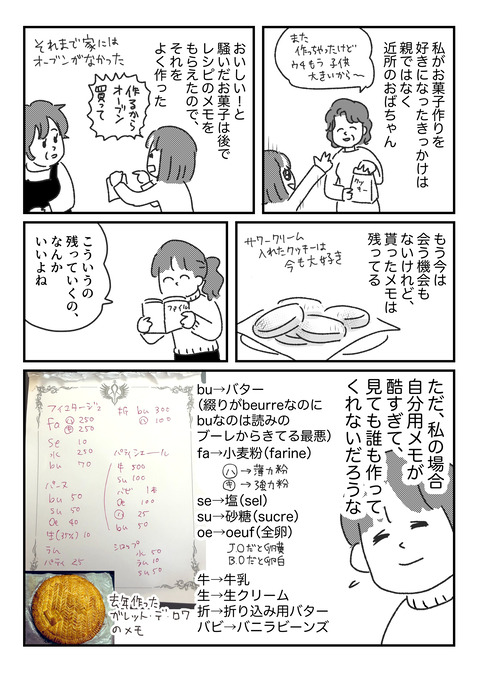 私がお菓子作りを
好きになったきっかけは
親ではなく
近所のおばちゃん
また
作っちゃったけど
ウチもう子供
大きいから〜
クッキー
おいしい！と
騒いだお菓子は後で
レシピのメモを
もらえたので、
それを
よく作った
それまで家には
オーブンがなかった
作るから
オーブン
買って
もう今は
会う機会も
ないけれど、
貰ったメモは
残ってる
サワークリーム
入れたクッキーは
今も大好き
こういうの
残っていくの、
なんか
いいよね
ファイル
ただ、私の場合
自分用メモが
酷すぎて、
見ても誰も作って
くれないだろうな
アイユタージュ
Fa ハ 250
キ 250
se 10
水 250
bu 70
折 bu 300
ハ 100
パティシエール
牛 500
su 100
バビ 1本
oe 100
ハ 25
bu 50
バース
bu 50
su 50
oe 40
生(35%) 10
ラム
パティ 25
シロップ
水 50
ラム 10
su 50
bu→バター
(綴りがbeurreなのに
buなのは読みの
ブーレからきてる最悪)
fa→小麦粉(farine)
ハ→薄力粉
キ→強力粉
se→塩(sel)
su→砂糖(sucre)
oe→oeuf(全卵)
J.Oだと卵黄
B.Oだと卵白
牛→牛乳
生→生クリーム
折→折り込み用バター
バビ→バニラビーンズ
去年作った
ガレット・デ・ロワ
のメモ